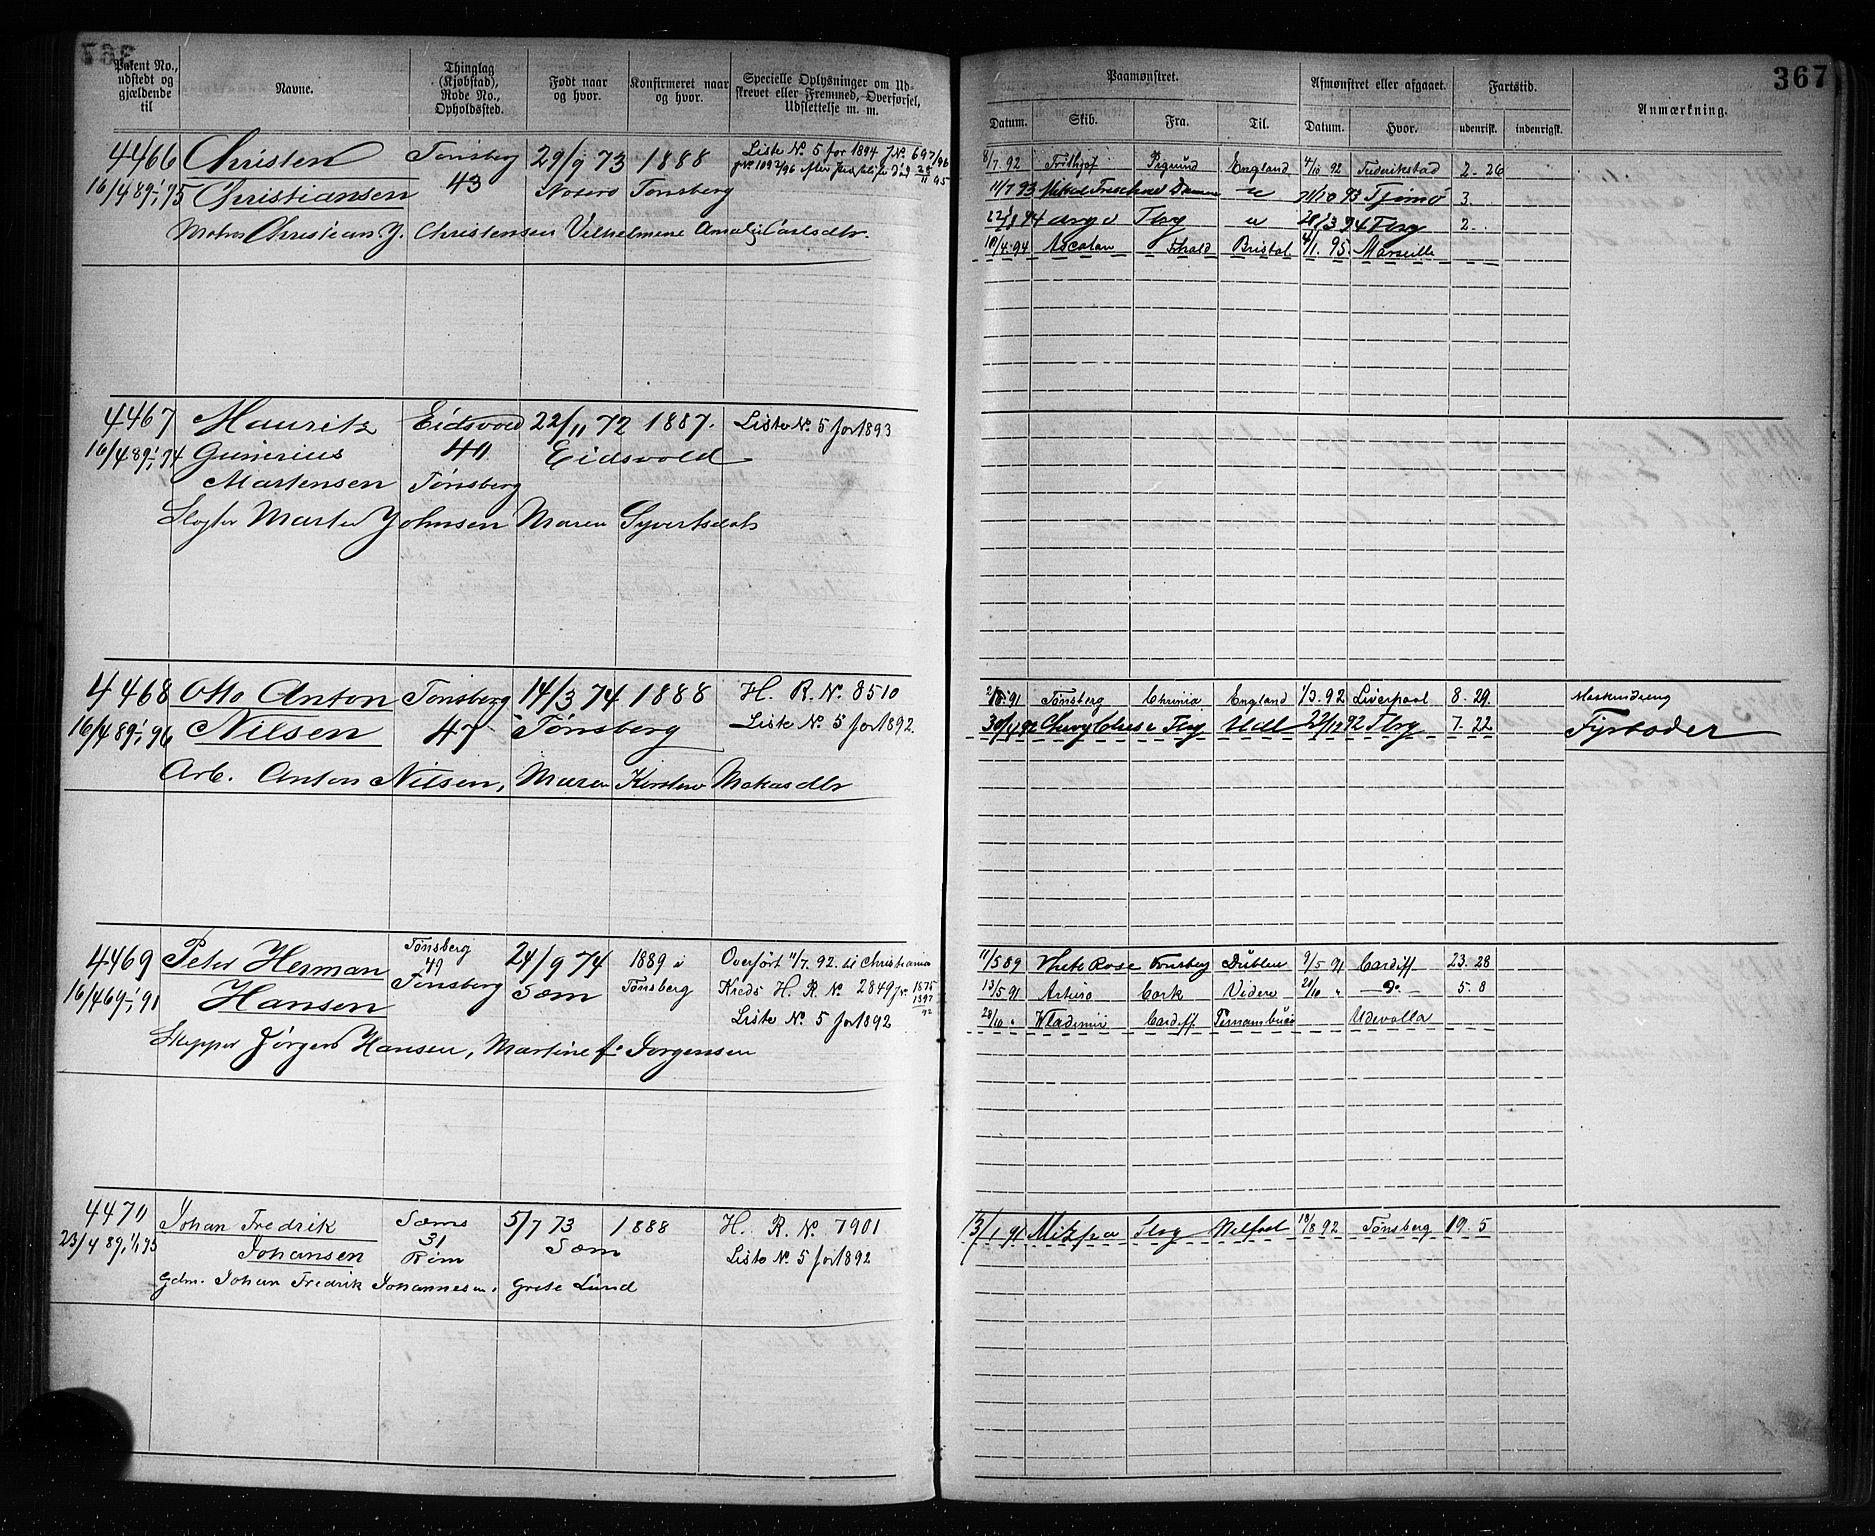 367
Patent No., udstedt og gjældende til
Navne.
Thinglag (Kjøbstad), Rode No., Opholdssted.
Født naar og hvor.
Konfirmeret naar og hvor.
Specielle Oplysninger om Udskrevet eller Fremmed, Overførsel, Udslettelse m. m.
Paamønstret.
Afmønstret eller afgaaet.
Fartstid.
Anmærkning.
Datum. Skib. Fra. Til. Datum. Hvor. udenrigsk. indenrigsk.
4466 Christen Tønsberg 29/9 73 1888 Liste No. 5 for 1894 J.No. 697/96
16/4 89 1/1 95 Christiansen 43 Nøterø Tønsberg
Christian J. Christensen Vilhelmine Amalie Carlsdtr.
8/7 92 Frithjof England 4/10 92 Frederikstad 2-26
11/7 93 21/10 93 Tjømø 3.
Argo Tbrg 94 Tbrg 2.
10/4 94 Ascalon Fhald Bristol 4/1 95. Marseille
4467 Mauritz Eidsvold 22/11 72 1887. Liste No. 5 for 1893
16/4 89 1/1 94 Gunerius 40 Eidsvold
Martensen Tønsberg
Marten Johnsen Maren Syvertsdatr
4468 Otto Anton Tønsberg 14/3 74 1888 H. R. No. 8510
16/4 89 1/1 96 Nilsen 47 Tønsberg Liste No. 5 for 1892.
Arb. Anton Nilsen, Maren
91 Tønsberg Chrinia England 1/3. 92 Liverpool 8. 29. Maskindreng
Tbrg Udl 92 Tbrg 7. 22 Fyrbøder
4469 Peter Herman Tønsberg 24/9 74 1889 i Overført 11/7. 92. til Christiania
16/4 69 1/1 91 Hansen 49 Tønsberg Sæm Tønsberg Kreds H. R. No. 2849
Liste No. 5 for 1892
Jørgen Hansen, Martine f. Jørgensen
11/5 89 White Rose Tønsberg Dublin 9/5 91 Cardiff 23. 28
13/5 91 Arturo Cork Videre 28/10 " do 5. 8
28/10 " Wladimir Cardiff Pernambuco Udevalla
4470 Johan Fredrik Sæms 5/7 73 1888 H. R. No. 7901
23/4 89 1/1 95 Johansen 31 Rom Sæm Liste No. 5 for 1892
Gdm. Johan Fredrik Johannesen, Grete Lund
13/1 91 Mitzpa Tbrg 18/8 92 Tønsberg 19. 5